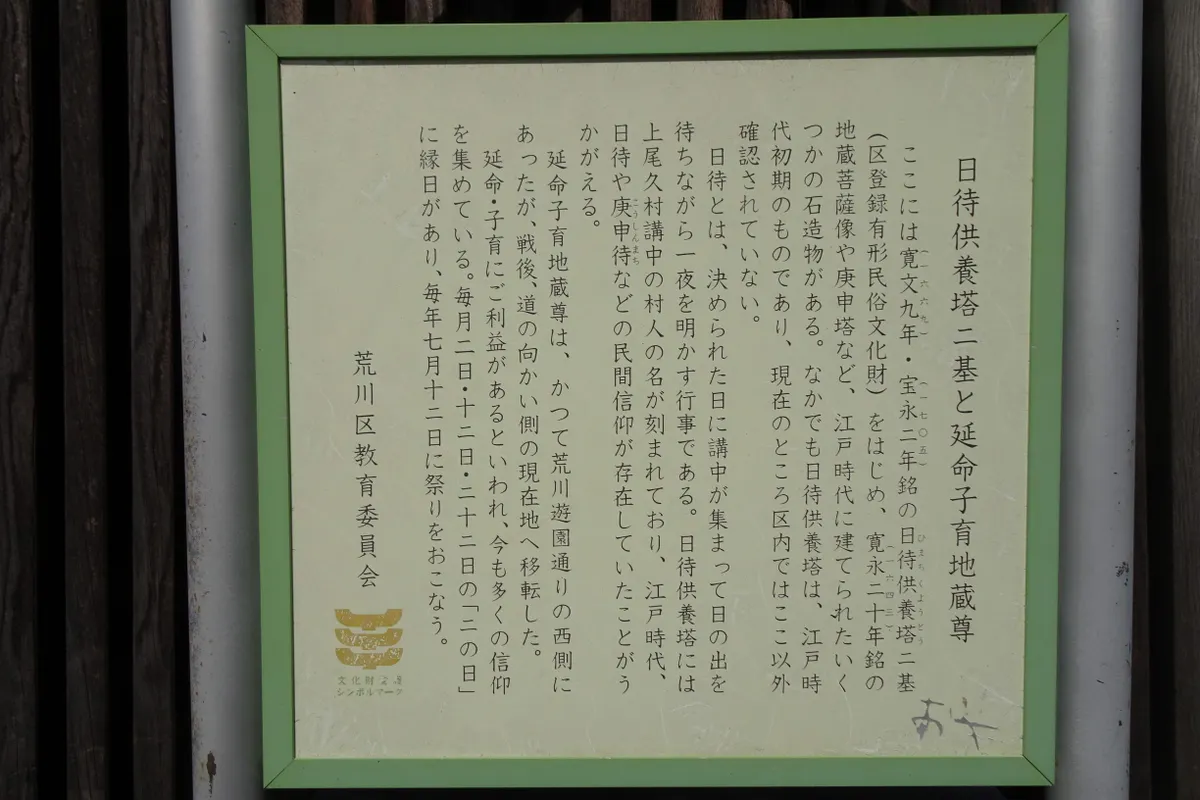 日待供養塔二基と延命子育地蔵尊
（一六六九） （一七〇五） ひまちくようとう
ここには寛文九年・宝永二年銘の日待供養塔二基
（一六四三）
（区登録有形民俗文化財）をはじめ、寛永二十年銘の
地蔵菩薩像や庚申塔など、江戸時代に建てられたいく
つかの石造物がある。なかでも日待供養塔は、江戸時
代初期のものであり、現在のところ区内ではここ以外
確認されていない。
日待とは、決められた日に講中が集まって日の出を
待ちながら一夜を明かす行事である。日待供養塔には
上尾久村講中の村人の名が刻まれており、江戸時代、
こうしんまち
日待や庚申待などの民間信仰が存在していたことがう
かがえる。
延命子育地蔵尊は、かつて荒川遊園通りの西側に
あったが、戦後、道の向かい側の現在地へ移転した。
延命・子育にご利益があるといわれ、今も多くの信仰
を集めている。毎月二日・十二日・二十二日の「二の日」
に縁日があり、毎年七月十二日に祭りをおこなう。
荒川区教育委員会
文化財
シンボルマーク